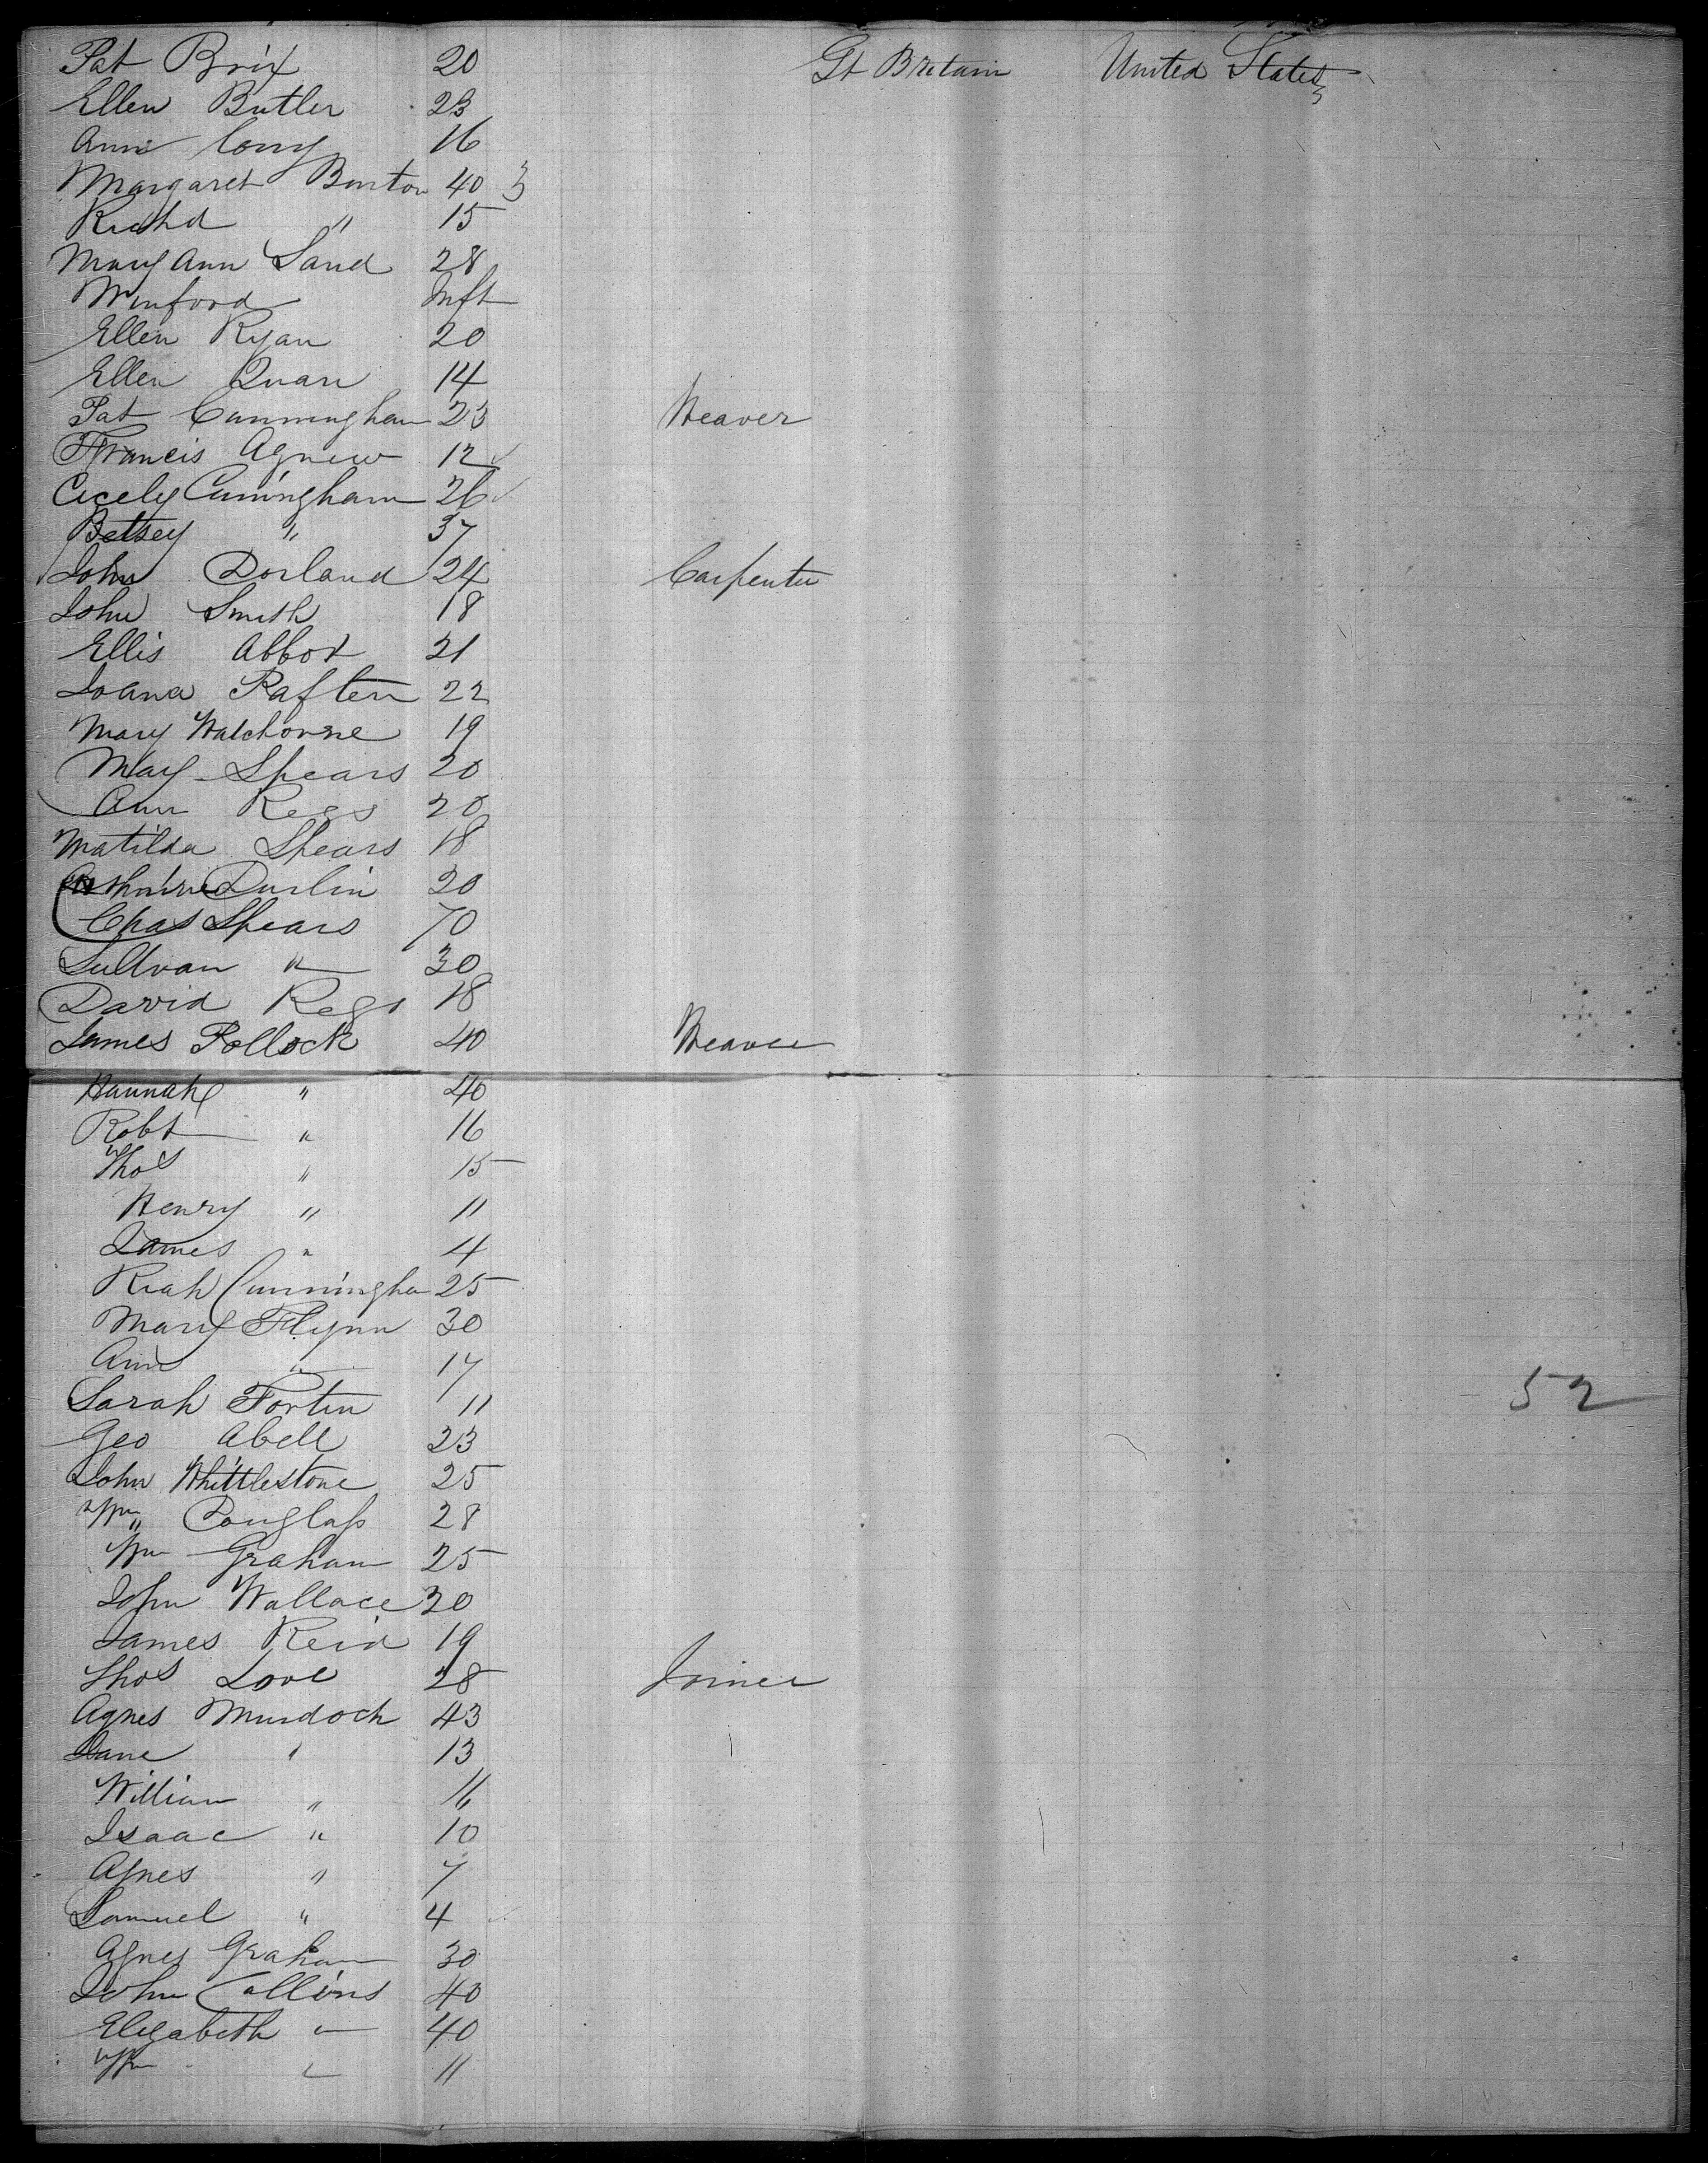 Pat Brix 20 Gt Britain United States
Ellen Butler 23
Ann Cony 16
Margaret Burton 40
Richd " 15
Mary Ann Sand 28
Winford Inft
Ellen Ryan 20
Ellen Quan 14
Pat Cunningham 23 Weaver
Francis Agnew 12
Cicely Cuningham 26
Betsey " 37
John Dorland 24 Carpenter
John Smith 18
Ellis Abbot 21
Joana Raften 22
Mary Watchorne 19
Mary Spears 20
Ann Regs 20
Matilda Spears 18
Durlin 20
Chas Spears 70
Sullvan " 30
David Regs 18
James Pollock 40 Weaver
Hannah " 40
Robt " 16
Thos " 15
Henry " 11
James " 4
Riah Cunningha 25
Mary Flynn 30
Ann " 17
Sarah Fortin 11 52
Geo Abell 23
John Whittlestone 25
Wm Douglass 28
Wm Graham 25
John Wallace 20
James Reid 19
Thos Love 28 Joiner
Agnes Murdoch 43
Jane " 13
William " 11
Isaac " 10
Agnes " 7
Samuel " 4
Agnes Graham 30
John Collins 40
Elizabeth " 40
Wm " 11